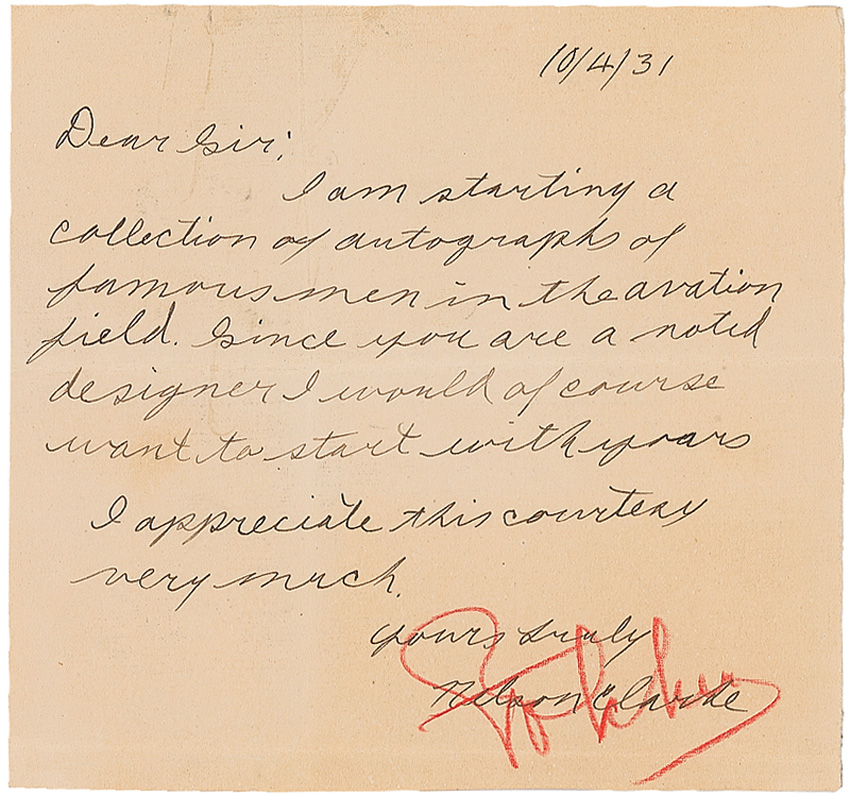 10/4/31
Dear Sir:
I am starting a
collection of autographs of
famous men in the aviation
field. Since you are a noted
designer I would of course
want to start with yours
I appreciate this courtesy
very much.
Yours truly
Nelson Clarke
Fokker